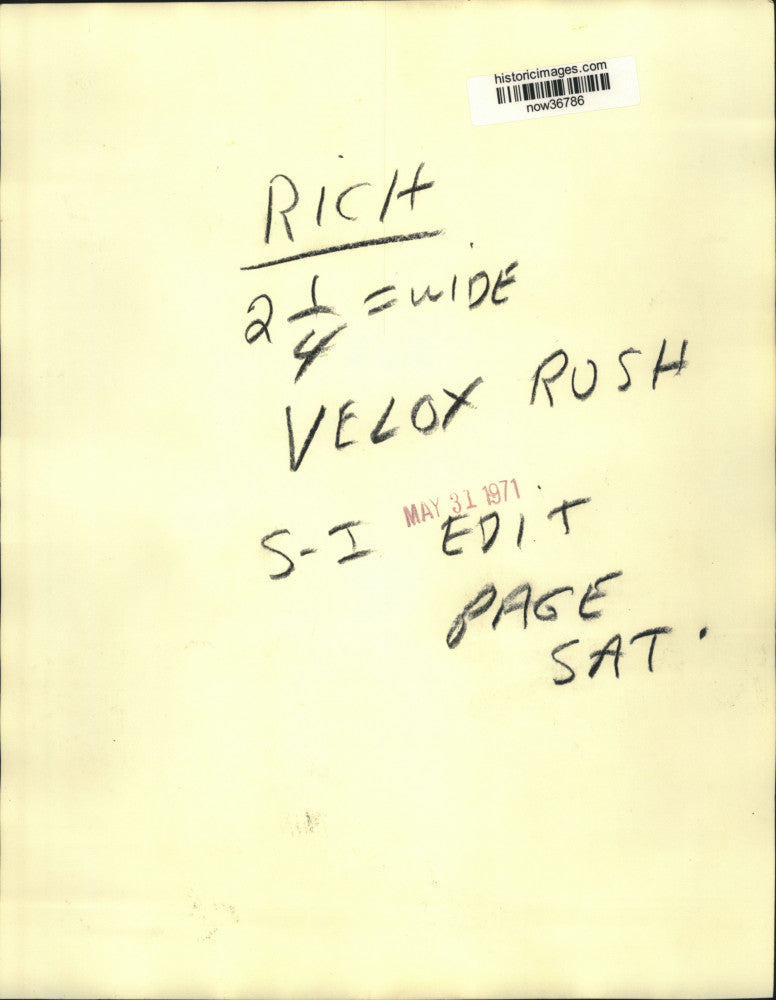 historicimages.com
now36786
RICH
2 1/4 = WIDE
VELOX RUSH
MAY 31 1971
S-I EDIT
PAGE
SAT.